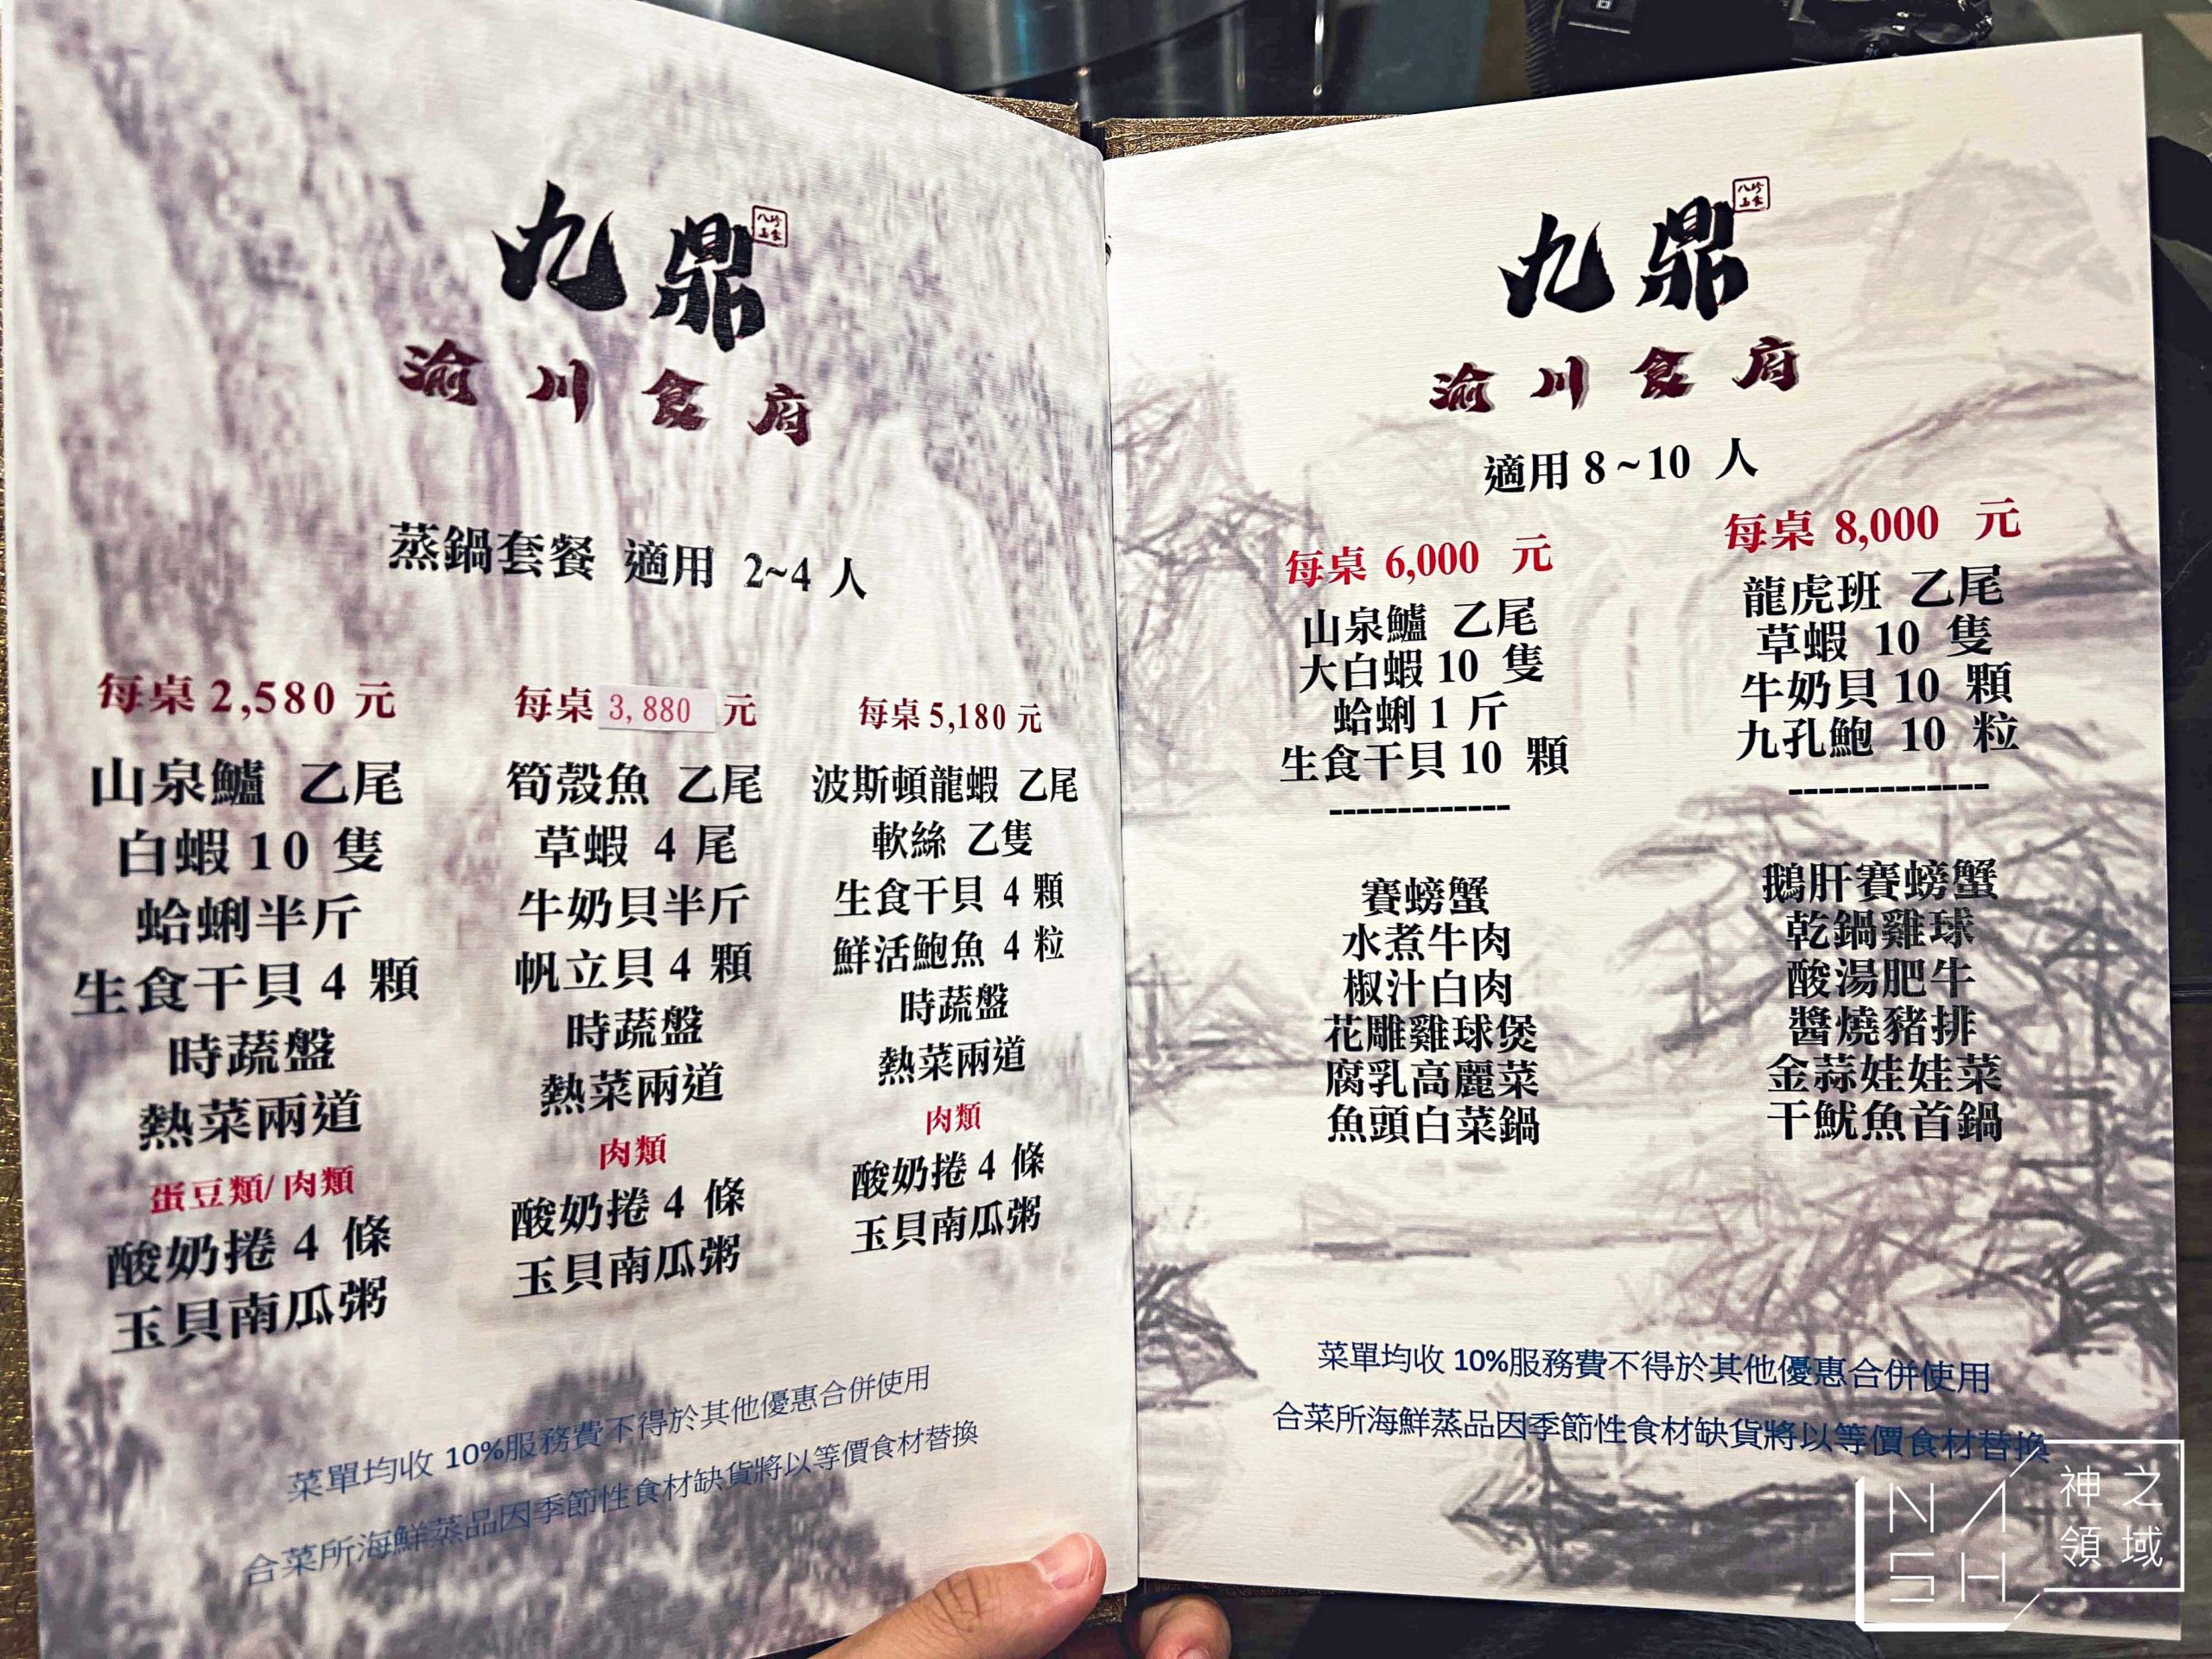 九鼎
八珍
玉食
渝川食府
蒸鍋套餐 適用 2~4 人
每桌 2,580 元
山泉鱸 乙尾
白蝦 10 隻
蛤蜊半斤
生食干貝 4 顆
時蔬盤
熱菜兩道
蛋豆類/肉類
酸奶捲 4 條
玉貝南瓜粥
每桌 3,880 元
筍殼魚 乙尾
草蝦 4 尾
牛奶貝半斤
帆立貝 4 顆
時蔬盤
熱菜兩道
肉類
酸奶捲 4 條
玉貝南瓜粥
每桌 5,180 元
波斯頓龍蝦 乙尾
軟絲 乙隻
生食干貝 4 顆
鮮活鮑魚 4 粒
時蔬盤
熱菜兩道
肉類
酸奶捲 4 條
玉貝南瓜粥
菜單均收 10%服務費不得於其他優惠合併使用
合菜所海鮮蒸品因季節性食材缺貨將以等價食材替換
九鼎
八珍
玉食
渝川食府
適用 8~10 人
每桌 6,000 元
山泉鱸 乙尾
大白蝦 10 隻
蛤蜊 1 斤
生食干貝 10 顆
-------------
賽螃蟹
水煮牛肉
椒汁白肉
花雕雞球煲
腐乳高麗菜
魚頭白菜鍋
每桌 8,000 元
龍虎班 乙尾
草蝦 10 隻
牛奶貝 10 顆
九孔鮑 10 粒
-------------
鵝肝賽螃蟹
乾鍋雞球
酸湯肥牛
醬燒豬排
金蒜娃娃菜
干魷魚首鍋
菜單均收 10%服務費不得於其他優惠合併使用
合菜所海鮮蒸品因季節性食材缺貨將以等價食材替換
NASH
神之領域